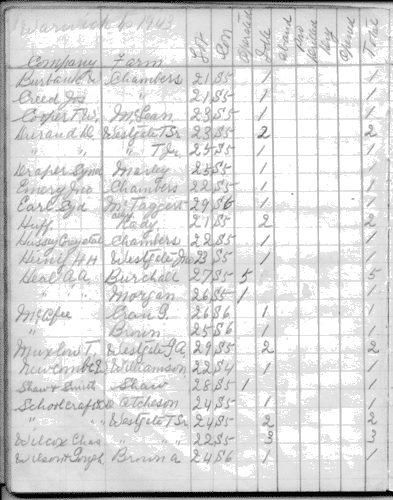 Warwick Co 1943
Company Farm Lot Con Operated Idle aband Total
Burbank R Chambers 21 S5 1 1
Creed Jos 21 S5 1 1
Cooper T W. McLean 23 S5 1 1
Westgate T Sr 23 S5 2 2
" " " T Jr 25 S5 1 1
Draper Synd Morley 25 S5 1 1
Emery Geo Chambers 22 S5 1 1
Earl Syd McTaggart 29 S6 1 1
Huff. Kady 21 S5 2 2
Hussey Crystal Chambers 22 S5 1 1
H H Westgate 23 S5 1 1
Heal A.A Burchall 27 S5 5 5
" " " Morgan 26 S5 1 1
McAfee 26 S6 1 1
" Brown 25 S6 1 1
Muxlow T. Westgate J A. 29 S5 2 2
Newcombe Williamson 22 S4 1 1
Shaw & Smith Shaw 28 S5 1 1
Acheson 24 S5 1 1
" Westgate T Sr 24 S5 2 2
Wilcox Chas " " " 22 S5 3 3
Brown A 24 S6 1 1